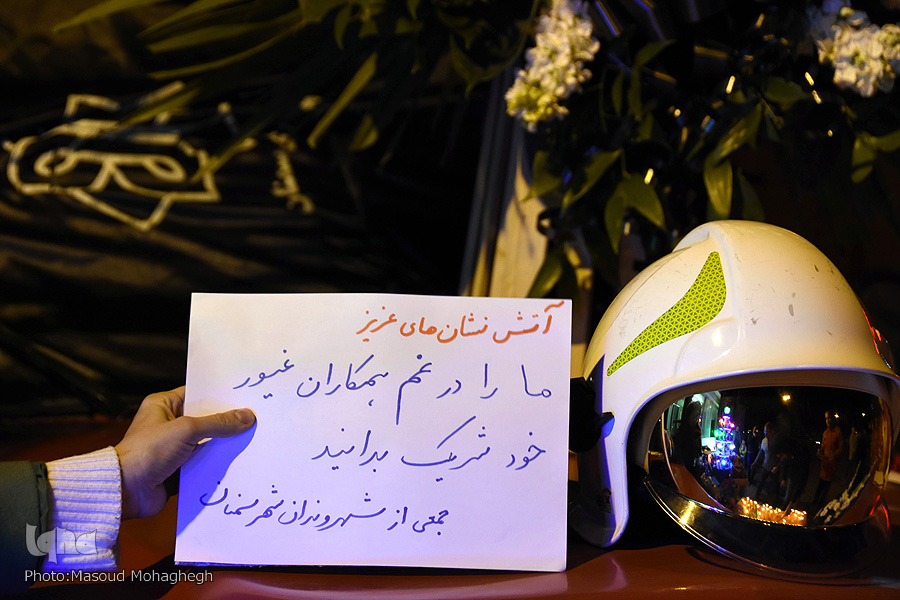 آتش نشان‌های عزیز
ما را در غم همکاران غیور
خود شریک بدانید
جمعی از شهروندان شهر سمنان
iqna
Photo:Masoud Mohaghegh